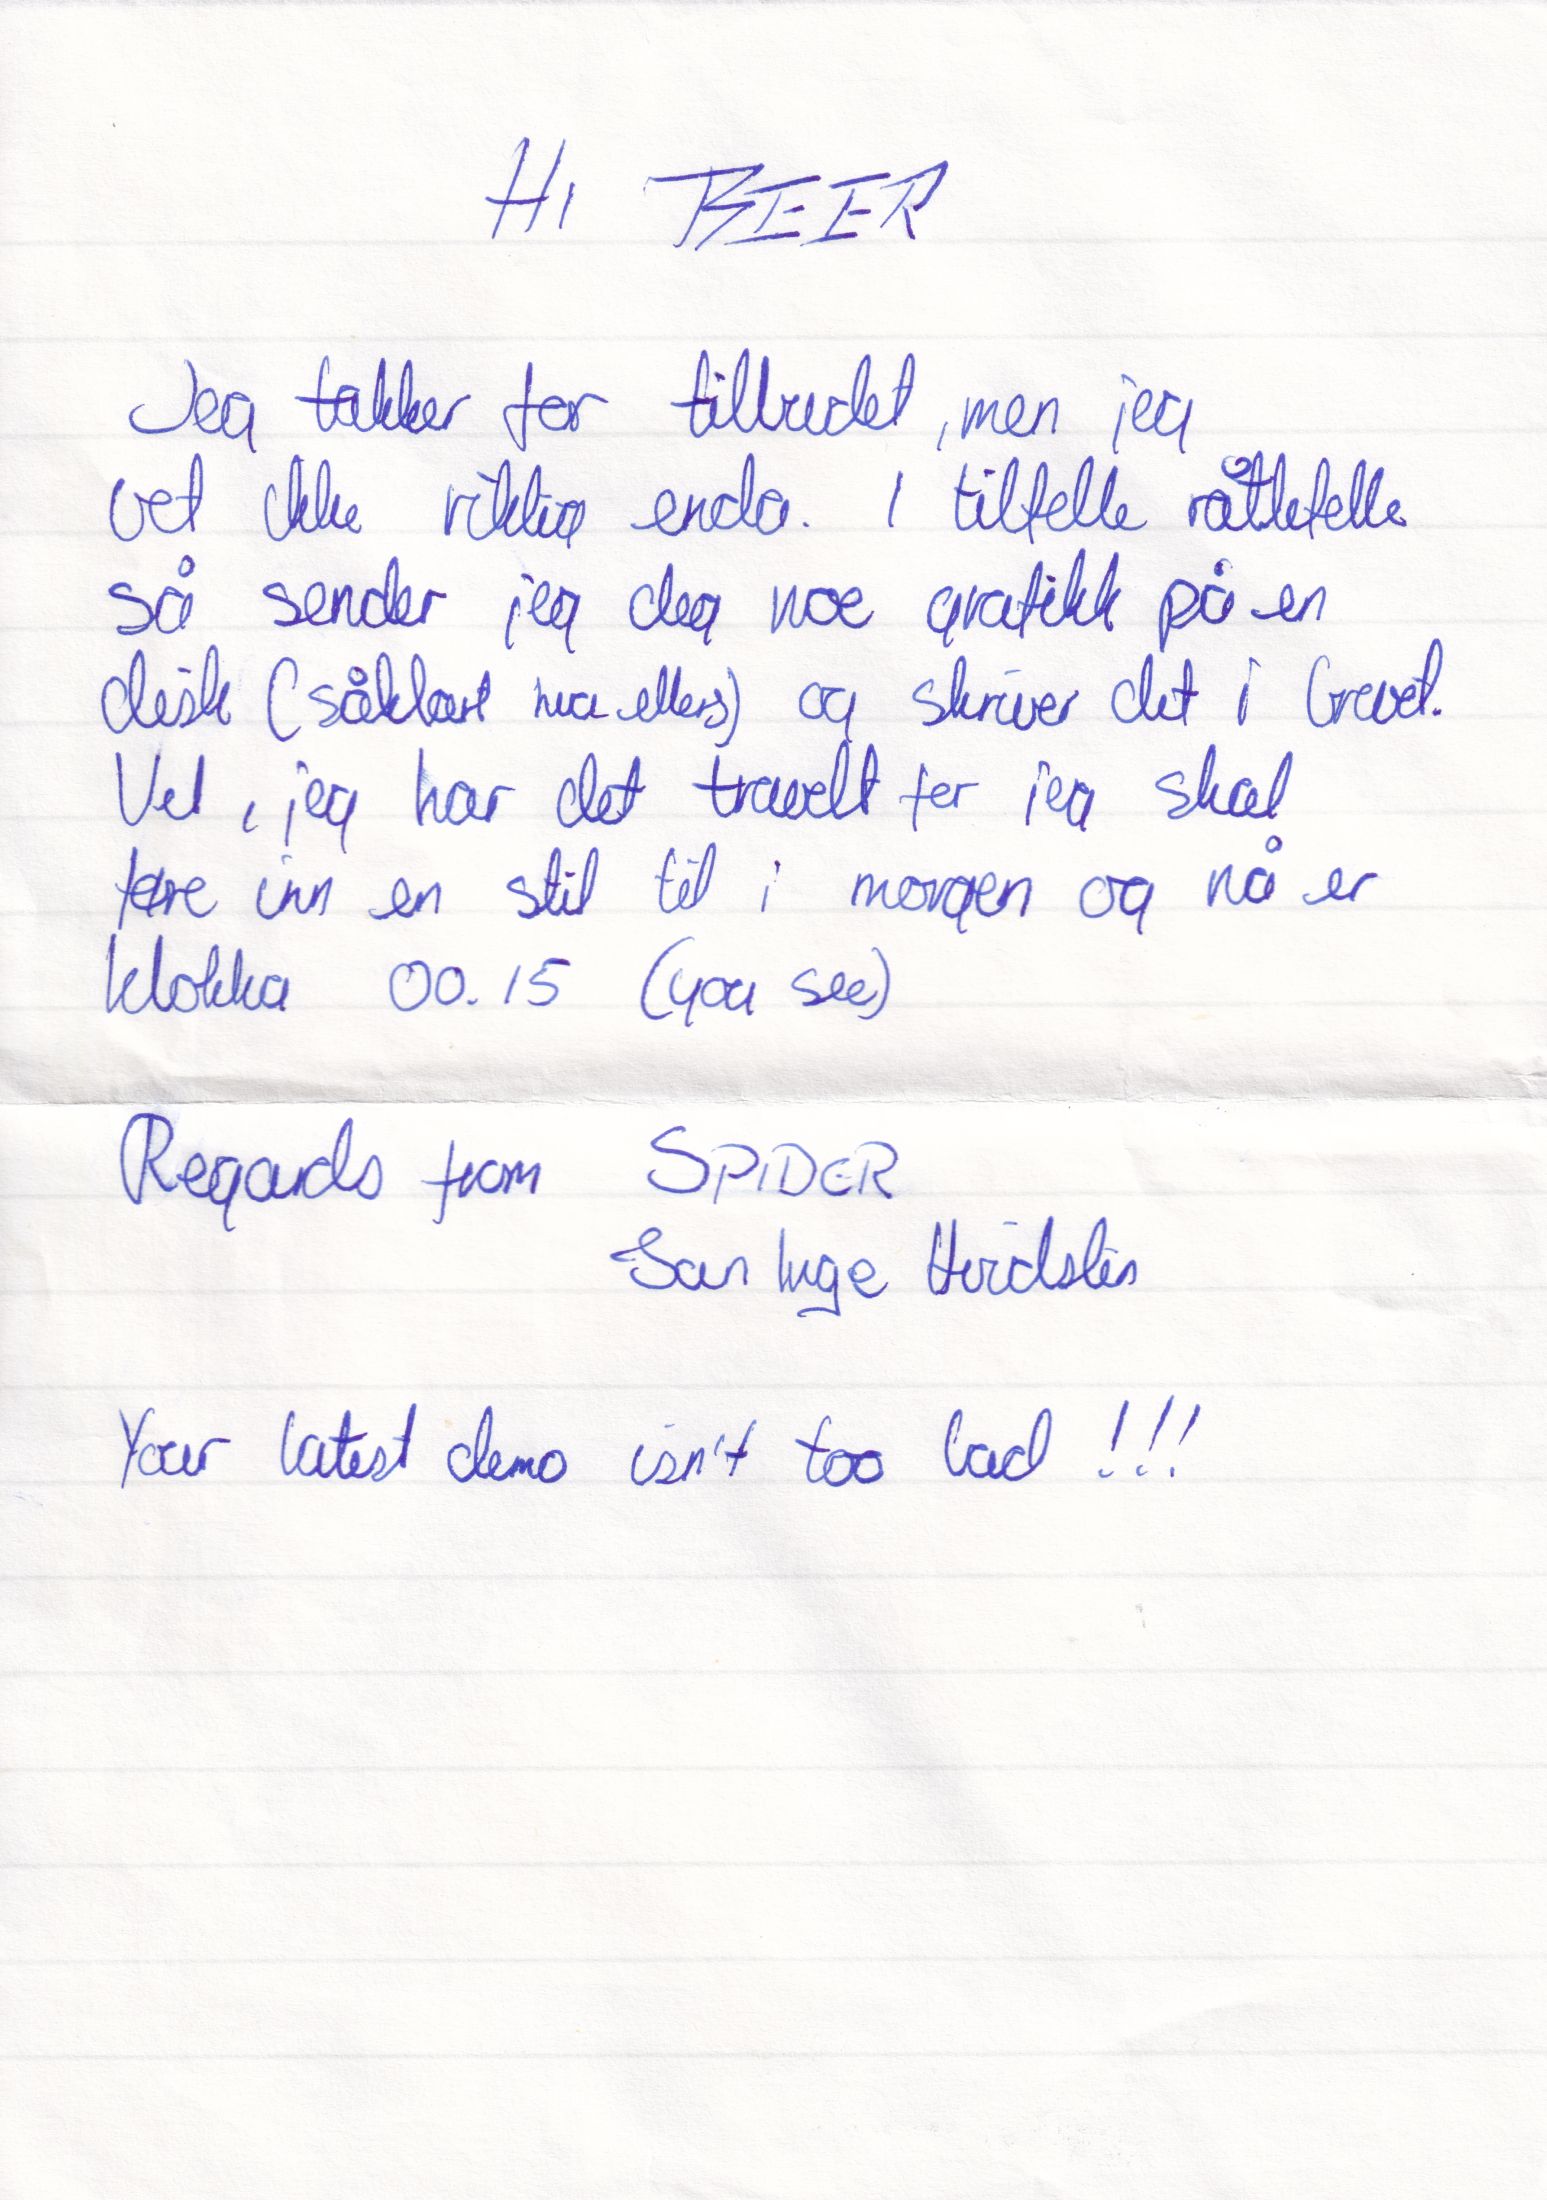 Hi BEER
Jeg takker for tilbudet, men jeg
vet ikke riktig enda. I tilfelle
så sender jeg deg noe grafikk på en
disk (såklart hva ellers) og skriver det i brevet.
Vel, jeg har det travelt for jeg skal
føre inn en stil til i morgen og nå er
klokka 00.15 (you see)
Regards from SPIDER
Jan Inge
Your latest demo isn't too bad !!!